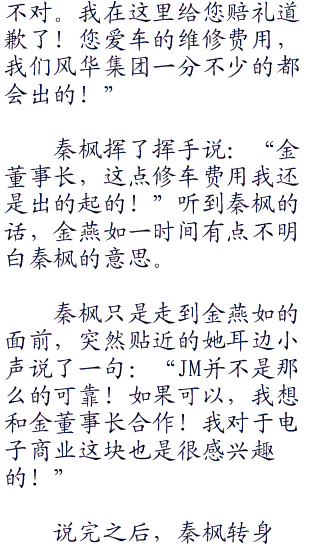 不对。我在这里给您赔礼道
歉了！您爱车的维修费用，
我们风华集团一分不少的都
会出的！”
秦枫挥了挥手说：“金
董事长，这点修车费用我还
是出的起的！”听到秦枫的
话，金燕如一时间有点不明
白秦枫的意思。
秦枫只是走到金燕如的
面前，突然贴近的她耳边小
声说了一句：“JM并不是那
么的可靠！如果可以，我想
和金董事长合作！我对于电
子商业这块也是很感兴趣
的！”
说完之后，秦枫转身